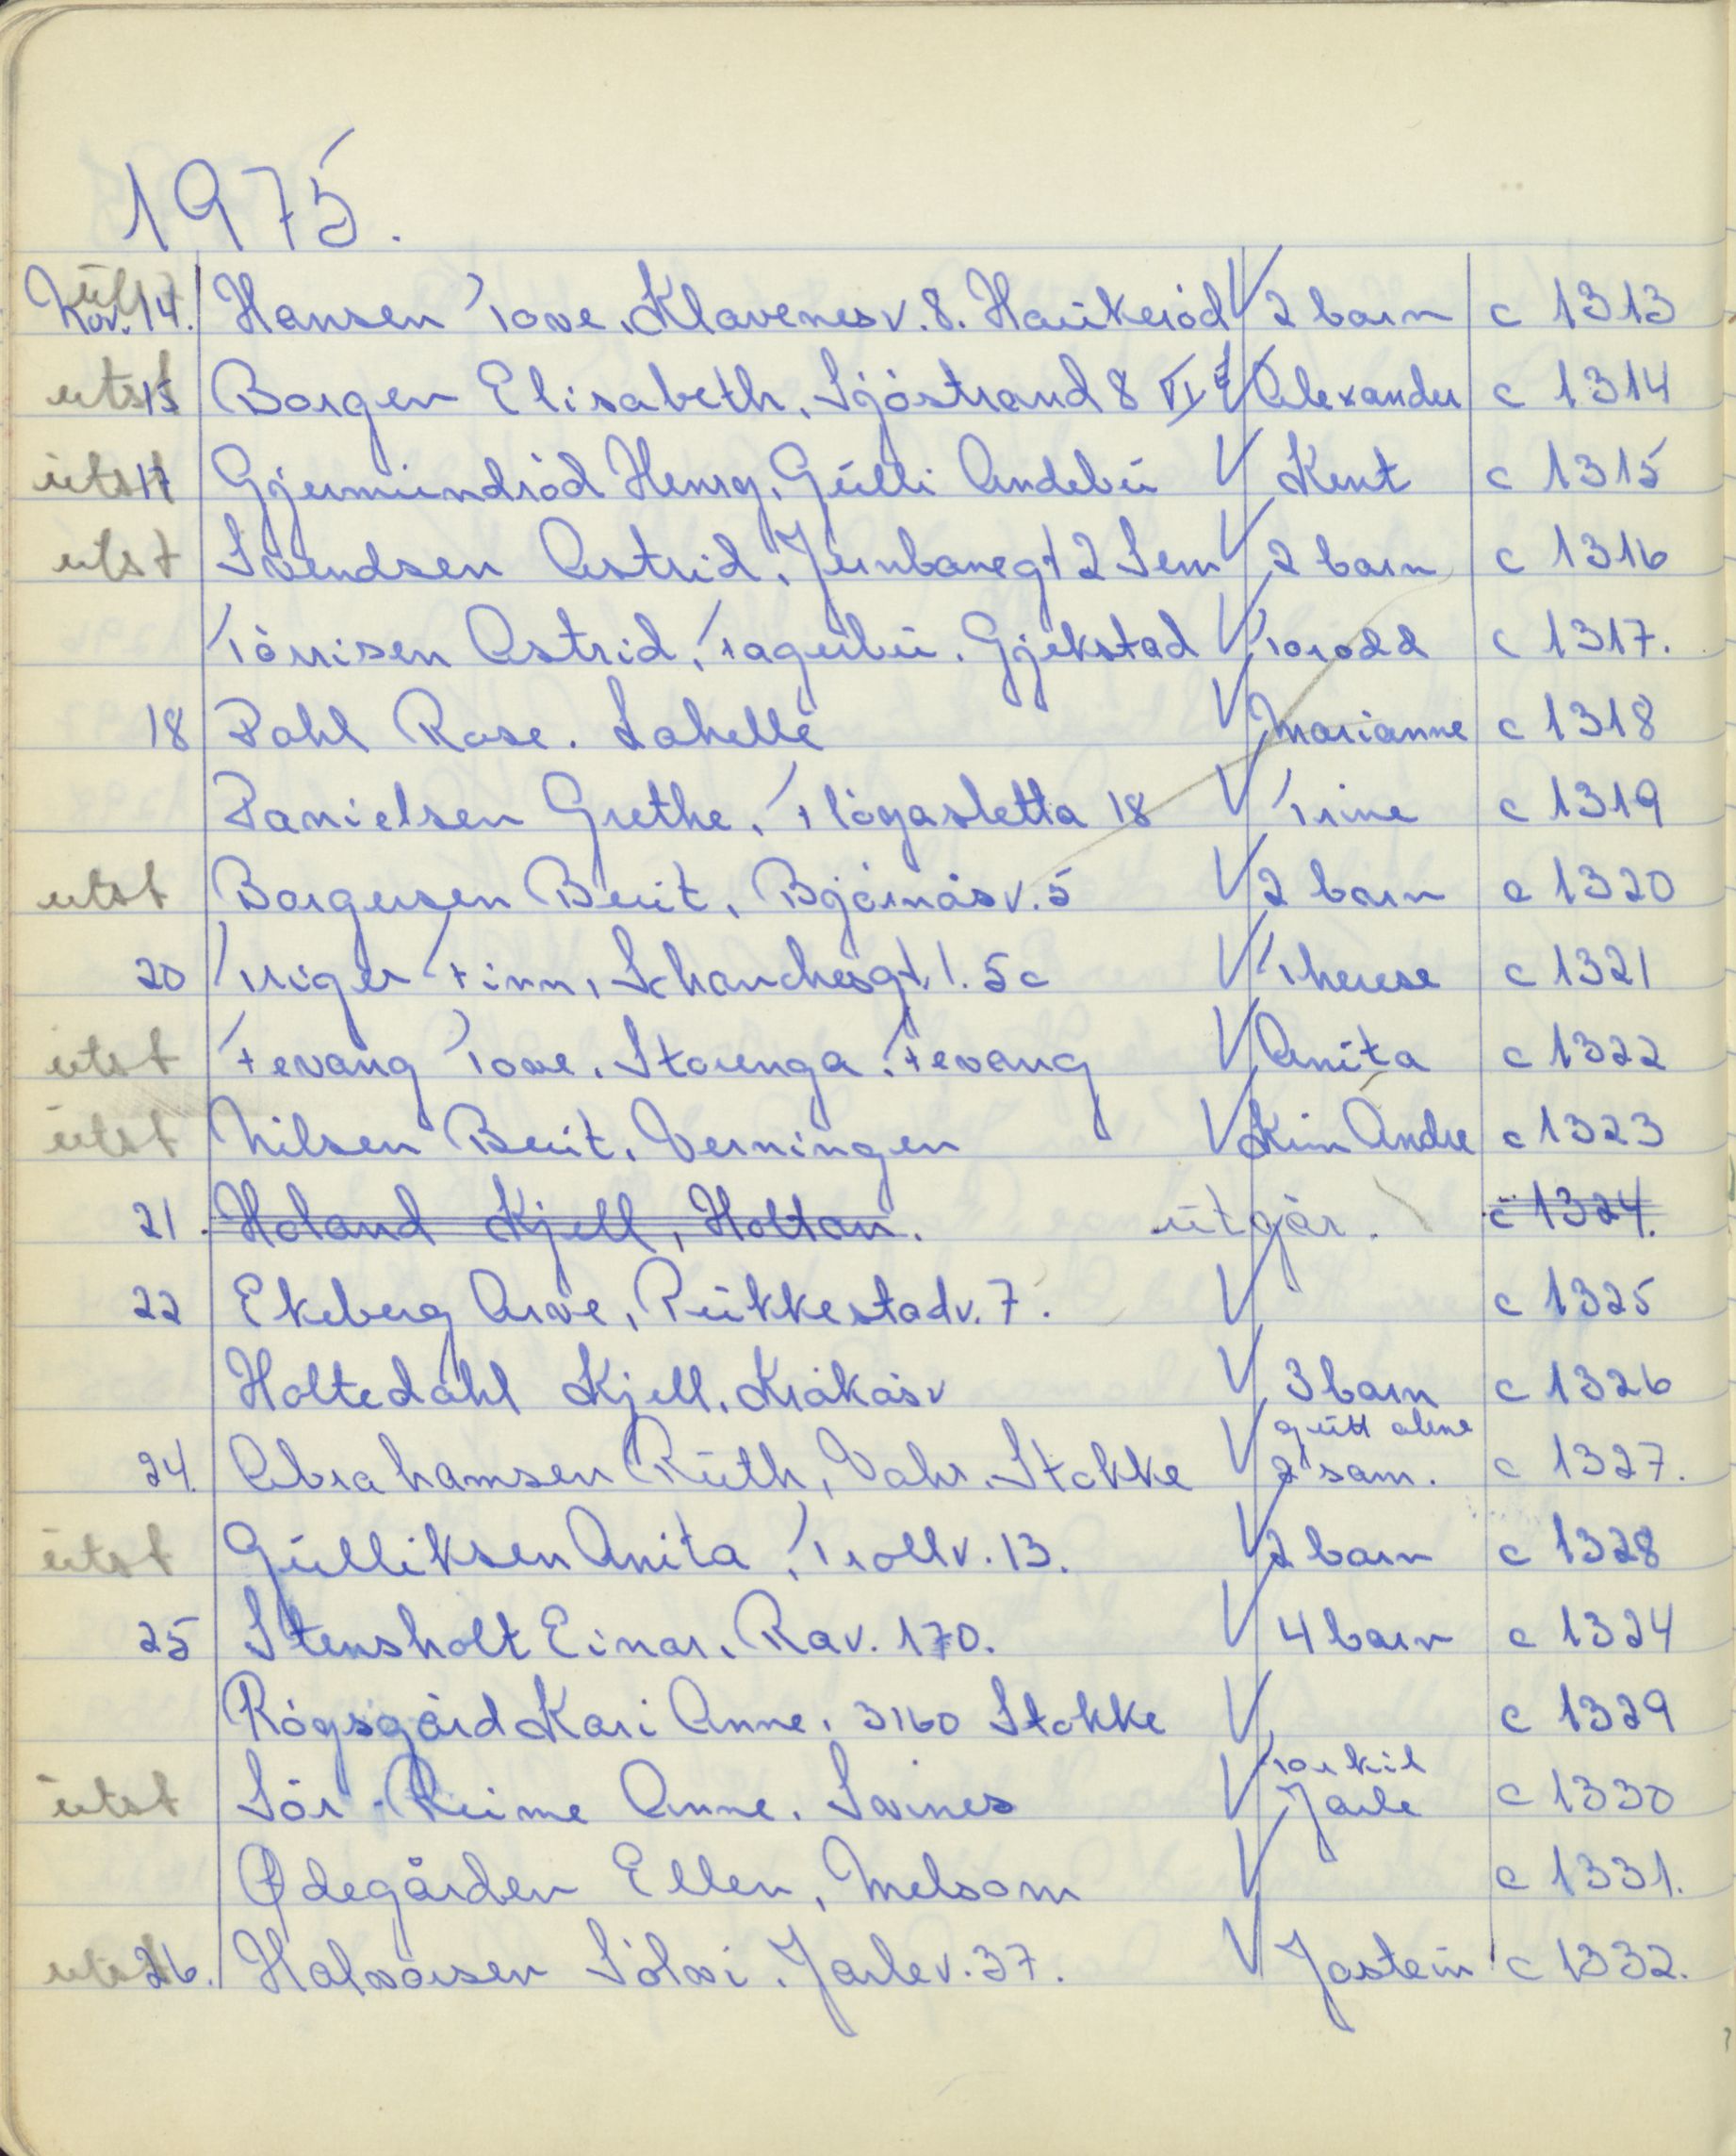 1975.
utst Nov. 14. Hansen Tove. Klavenesv. 8. Haukeröd V 2 barn c 1313
utst 15 Borgen Elisabeth. Sjöstrand 8 VI V Alexander c 1314
utst 17 Gjermundröd Henry. Gulli Andebu V Kent c 1315
utst Svendsen Astrid. Jernbanegt 2 Sem V 2 barn c 1316
Törrisen Astrid. Fagerbu. Gjekstad V Torodd c 1317.
18 Dahl Rose. Lahelle V Marianne c 1318
Danielsen Grethe. Flögasletta 18 V Trine c 1319
utst Borgersen Berit. Bjørnåsv. 5 V 2 barn c 1320
20 Triger Finn, Schanchesgt. 5c V Therese c 1321
utst Fevang Tove. Storenga. Fevang V Anita c 1322
utst Nilsen Berit. Verningen V Kim Andre c 1323
21. Holand Kjell, Holtan. utgår. c 1324.
22 Ekeberg Arve, Pukkestadv. 7. V c 1325
Holtedahl Kjell. Kråkåsv V 3 barn c 1326
gutt alene
24. Abrahamsen Ruth, Vahr. Stokke V 2 sam. c 1327.
utst Gulliksen Anita, Trollv. 13. V 2 barn c 1328
25 Stensholt Einar. Rav. 170. V 4 barn c 1324
Rögsgård Kari Anne. 3160 Stokke V c 1329
Torkil
utst Sör-Reime Anne. Svines V Jarle c 1330
Ødegården Ellen, Melsom V c 1331.
utst 26. Halvorsen Sölvi. Jarlev. 37. V Jostein c 1332.